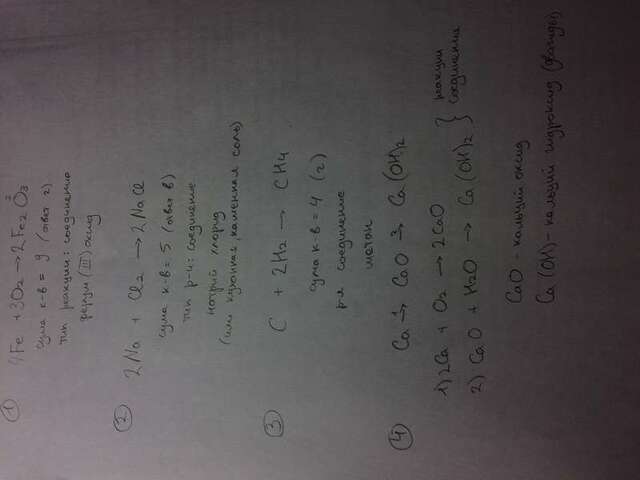 1
4Fe + 3O2 → 2Fe2O3
сума к-в = 9 (ответ г)
тип реакции: соединение
ферум (III) оксид
2
2Na + Cl2 → 2NaCl
сума к-в = 5 (ответ в)
тип р-и: соединение
натрий хлорид
(или кухонная, каменная соль)
3
C + 2H2 → CH4
сума к-в = 4 (г)
р-я соединение
метан
4
Ca → CaO → Ca(OH)2
1) 2Ca + O2 → 2CaO
2) CaO + H2O → Ca(OH)2
реакции
соединения
CaO - кальций оксид
Ca(OH) - кальций гидроксид (дважды)